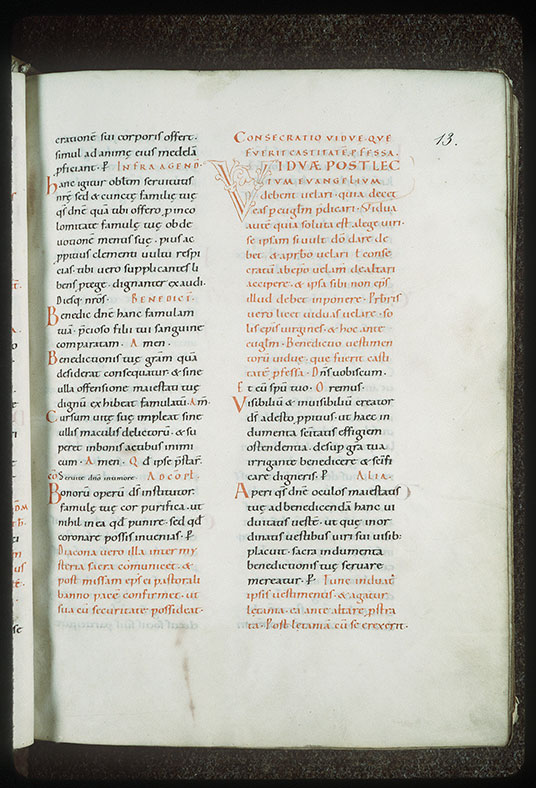 erationē sui corporis offert·
simul ad animę eius medelā
ꝓficiant· ꝑ INFRA AGEND
hanc igitur oblōm seruitutis
nrę̄ sed & cunctę familię tuę
qs̄ dnē quā tibi offero p inco
lomitate famulę tuę ob de
uotionē mentis suę· pius ac
ppitius clementi uultu respi
cias· tibi uero supplicantes li
bens ptege· dignanter exaudi·
Diesq· nr̄os· BENEDICT̄
Benedic dnē hanc famulam
tuā· p̄cioso filii tui sanguine
comparatam· Amen·
Benedictionis tuę gr̄am quā
desiderat consequatur & sine
ulla offensione maiestati tuę
dignū exhibeat famulatū· Am̄
Cursum uitę suę impleat sine
ullis maculis delictorū· & su
peret in bonis actibus inimi
cum· Amen· Qd ipse p̄star̄
cō Seruite dn̄o in timore AD CŌPL
Bonorū operū ds̄ institutor
famulę tuę cor purifica· ut
nihil in ea qd̄ punire· sed qd̄
coronare possis inuenias· ꝑ
Diacona uero illa inter my
steria sacra comunicet· &
post missam ep̄s ei pastorali
banno pacē confirmet· ut
sua cū securitate possideat·
CONSECRATIO VIDUĘ QUĘ
FUERIT CASTITATĒ PFESSA
VIDVÆ POST LEC
TVM EVANGELIVM
debent uelari· quia decet
eas p euglm̄ p̄dicari· Vidua
autē quia soluta est a lege uiri·
se ipsam si uult dō dare de
bet & a pr̄bo uelari t̄ conse
cratū ab ep̄o uelam̄ de altari
accipere· & ipsa sibi non ep̄s
illud debet inponere· Pr̄bris
uero licet uiduas uelare· so
lis ep̄is uirgines· & hoc ante
euglm̄· Benedictio uestimen
torū uiduę· que fuerit casti
tatē pfessa· Dn̄s uobiscum·
Et cū spū tuo· Oremus·
Visibiliū & inuisibiliū creator
ds̄ adesto ppitius· ut haec in
dumenta sc̄itatis effigiem
ostendentia· desup gr̄a tua
irrigante benedicere & sc̄ifi
care digneris· ꝑ ALIA
Aperi qs̄ dn̄e oculos maiestatis
tuę ad benedicendā hanc ui
duitatis uestē· ut quę inor
dinatis uestibus uiri sui uisib:
placuit· sacra indumenta
benedictionis tuę seruare
mereatur· ꝑ Tunc induat̄
ipsis uestimentis· & agatur
lętania· ea ante altare pstra
ta· Post lętaniā cū se erexerit·
13.